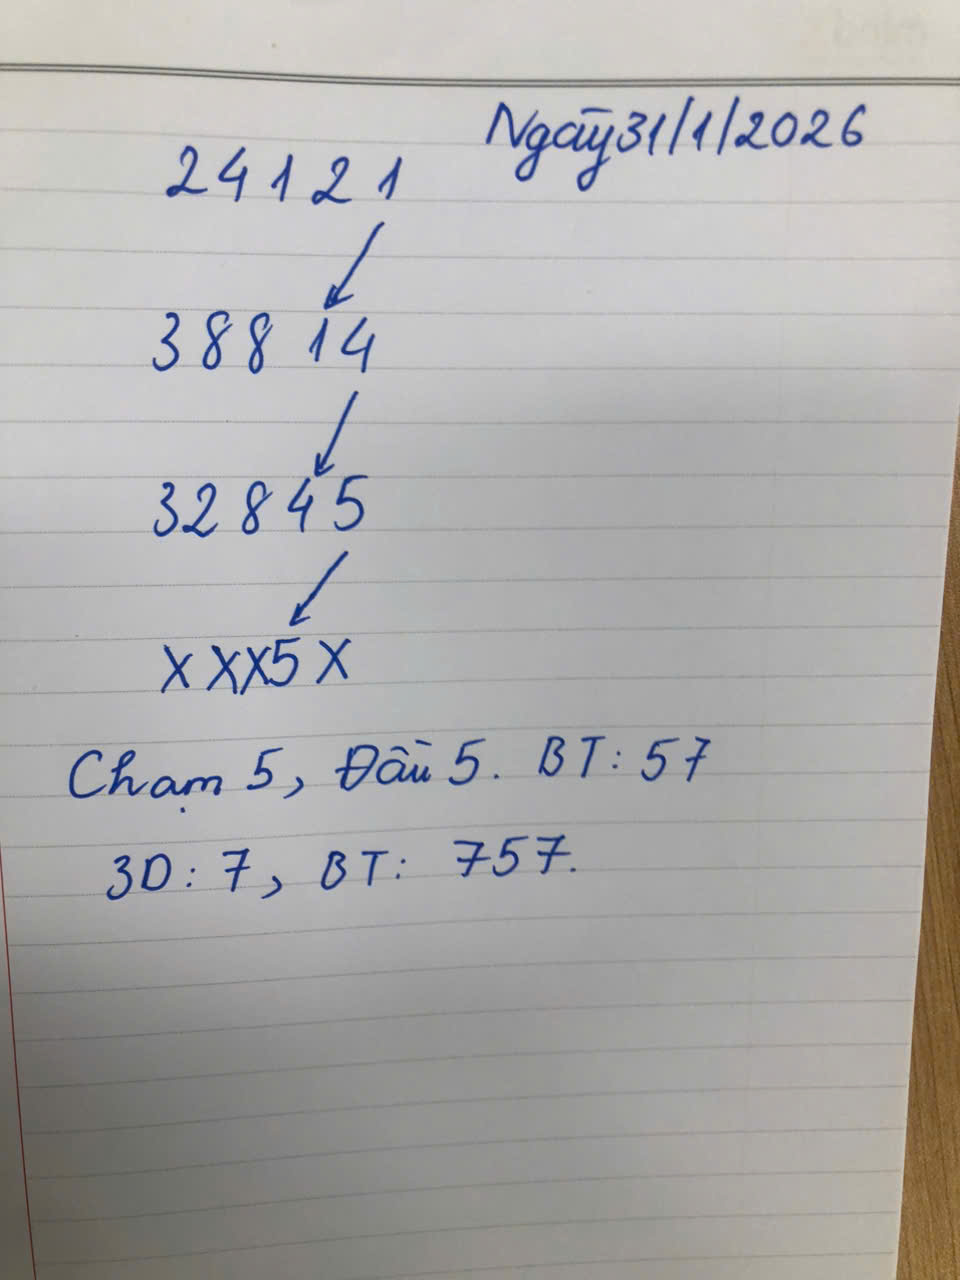 Ngày 31/1/2026
24121
38814
32845
XXX5X
Chạm 5, Đầu 5. BT: 57
3D: 7, BT: 757.